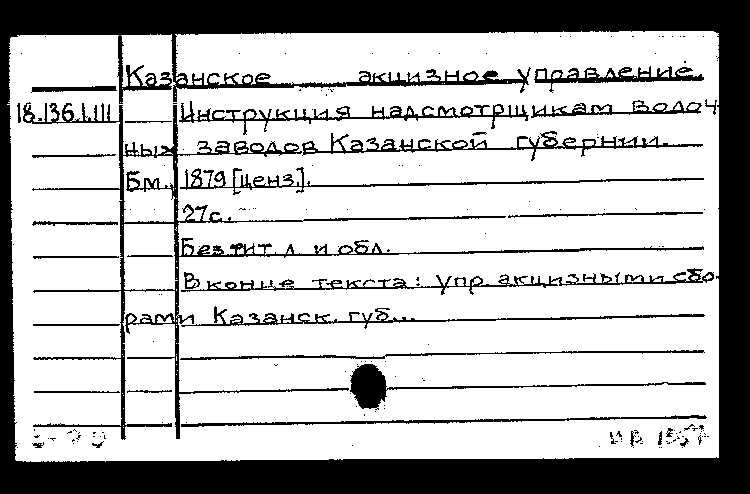 Казанское акцизное управление.
18.136.1.111 Инструкция надсмотрщикам волоч
ных заводов Казанской губернии.
Бм., 1879 [ценз.].
27с.
Без тит. л. и обл.
В конце текста: упр. акцизными сбо-
рами Казанск. губ...